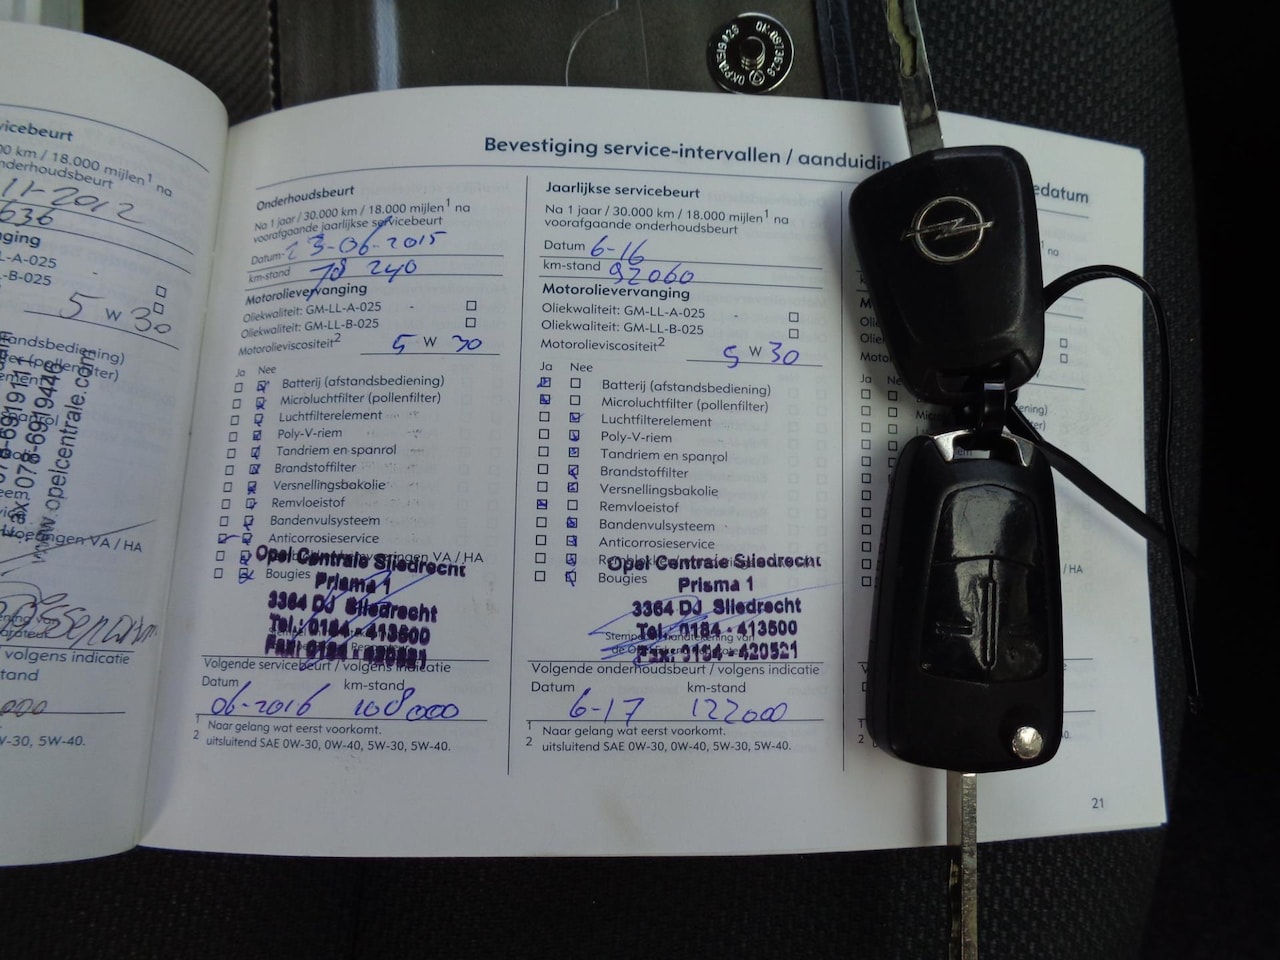 OK-PARIS19426 OK-0973628
vicebeurt
00 km / 18.000 mijlen1 na
nderhoudsbeurt
11-2012
636
nging
-LL-A-025
-LL-B-025
5 W 30
tandsbediening)
er (pollenfilter)
lement
078-6919446
www.opelcentrale.com
VA / HA
volgens indicatie
stand
000
W-30, 5W-40.
Bevestiging service-intervallen / aanduiding
edatum
Onderhoudsbeurt
Na 1 jaar / 30.000 km / 18.000 mijlen1 na
voorafgaande jaarlijkse servicebeurt
Datum 23-06-2015
km-stand 78 240
Motorolievervanging
Oliekwaliteit: GM-LL-A-025
Oliekwaliteit: GM-LL-B-025
Motorolieviscositeit2 5 W 30
Ja Nee
Batterij (afstandsbediening)
Microluchtfilter (pollenfilter)
Luchtfilterelement
Poly-V-riem
Tandriem en spanrol
Brandstoffilter
Versnellingsbakolie
Remvloeistof
Bandenvulsysteem
Anticorrosieservice
VA / HA
Bougies
Opel Centrale Sliedrecht
Prisma 1
3364 DJ Sliedrecht
Tel.: 0184 - 413500
Fax: 0184 - 420521
Volgende servicebeurt / volgens indicatie
Datum km-stand
06-2016 108000
1 Naar gelang wat eerst voorkomt.
2 uitsluitend SAE 0W-30, 0W-40, 5W-30, 5W-40.
Jaarlijkse servicebeurt
Na 1 jaar / 30.000 km / 18.000 mijlen1 na
voorafgaande onderhoudsbeurt
Datum 6-16
km-stand 92060
Motorolievervanging
Oliekwaliteit: GM-LL-A-025
Oliekwaliteit: GM-LL-B-025
Motorolieviscositeit2 5 W 30
Ja Nee
Batterij (afstandsbediening)
Microluchtfilter (pollenfilter)
Luchtfilterelement
Poly-V-riem
Tandriem en spanrol
Brandstoffilter
Versnellingsbakolie
Remvloeistof
Bandenvulsysteem
Anticorrosieservice
Bougies
Opel Centrale Sliedrecht
Prisma 1
3364 DJ Sliedrecht
Tel.: 0184 - 413500
Fax: 0184 - 420521
Volgende onderhoudsbeurt / volgens indicatie
Datum km-stand
6-17 122000
1 Naar gelang wat eerst voorkomt.
2 uitsluitend SAE 0W-30, 0W-40, 5W-30, 5W-40.
Ja Ne
21